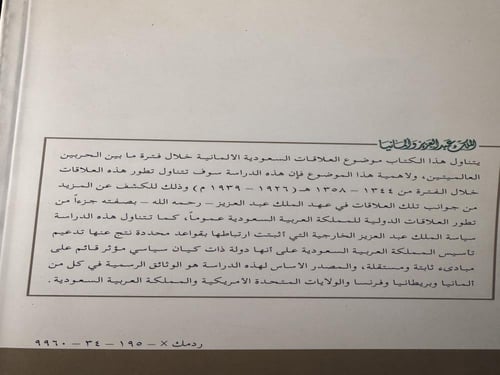 الملك عبد العزيز وألمانيا
يتناول هذا الكتاب موضوع العلاقات السعودية الألمانية خلال فترة ما بين الحربين
العالميتين، ولاهمية هذا الموضوع فإن هذه الدراسة سوف تتناول تطور هذه العلاقات
خلال الفترة من ١٣٤٤ – ١٣٥٨ هـ (١٩٢٦ – ١٩٣٩ م) وذلك للكشف عن المزيد
من جوانب تلك العلاقات في عهد الملك عبد العزيز – رحمه الله – بصفته جزءاً من
تطور العلاقات الدولية للمملكة العربية السعودية عموماً، كما تتناول هذه الدراسة
سياسة الملك عبد العزيز الخارجية التي أثبتت ارتباطها بقواعد محددة نتج عنها تدعيم
تأسيس المملكة العربية السعودية على أنها دولة ذات كيان سياسي مؤثر قائم على
مبادىء ثابتة ومستقلة، والمصدر الاساس لهذه الدراسة هو الوثائق الرسمية في كل من
المانيا وبريطانيا وفرنسا والولايات المتحدة الامريكية والمملكة العربية السعودية .
ردمك × – ١٩٥ – ٣٤ – ٩٩٦٠